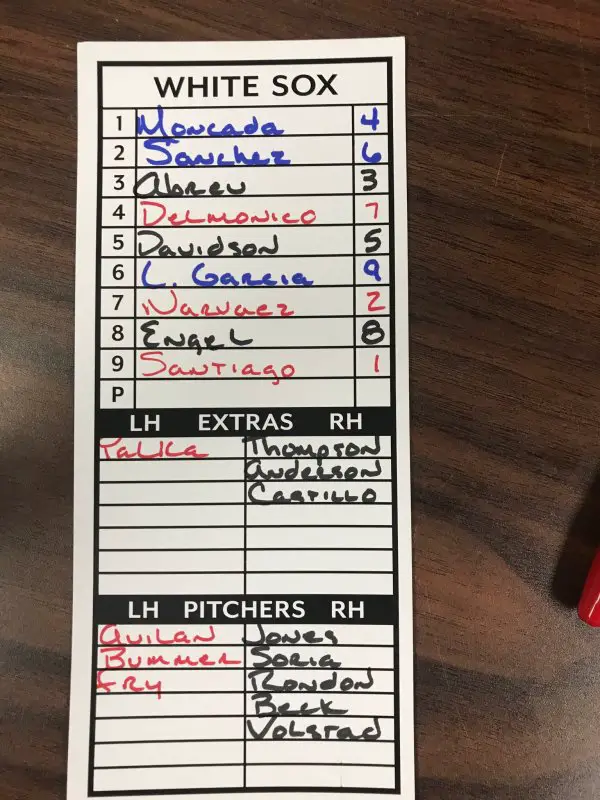 WHITE SOX
1 Moncada 4
2 Sanchez 6
3 Abreu 3
4 Delmonico 7
5 Davidson 5
6 L. Garcia 9
7 Narvaez 2
8 Engel 8
9 Santiago 1
P
LH EXTRAS RH
Palka Thompson
Anderson
Castillo
LH PITCHERS RH
Avilan Jones
Bummer Soria
Fry Rondon
Beck
Volstad